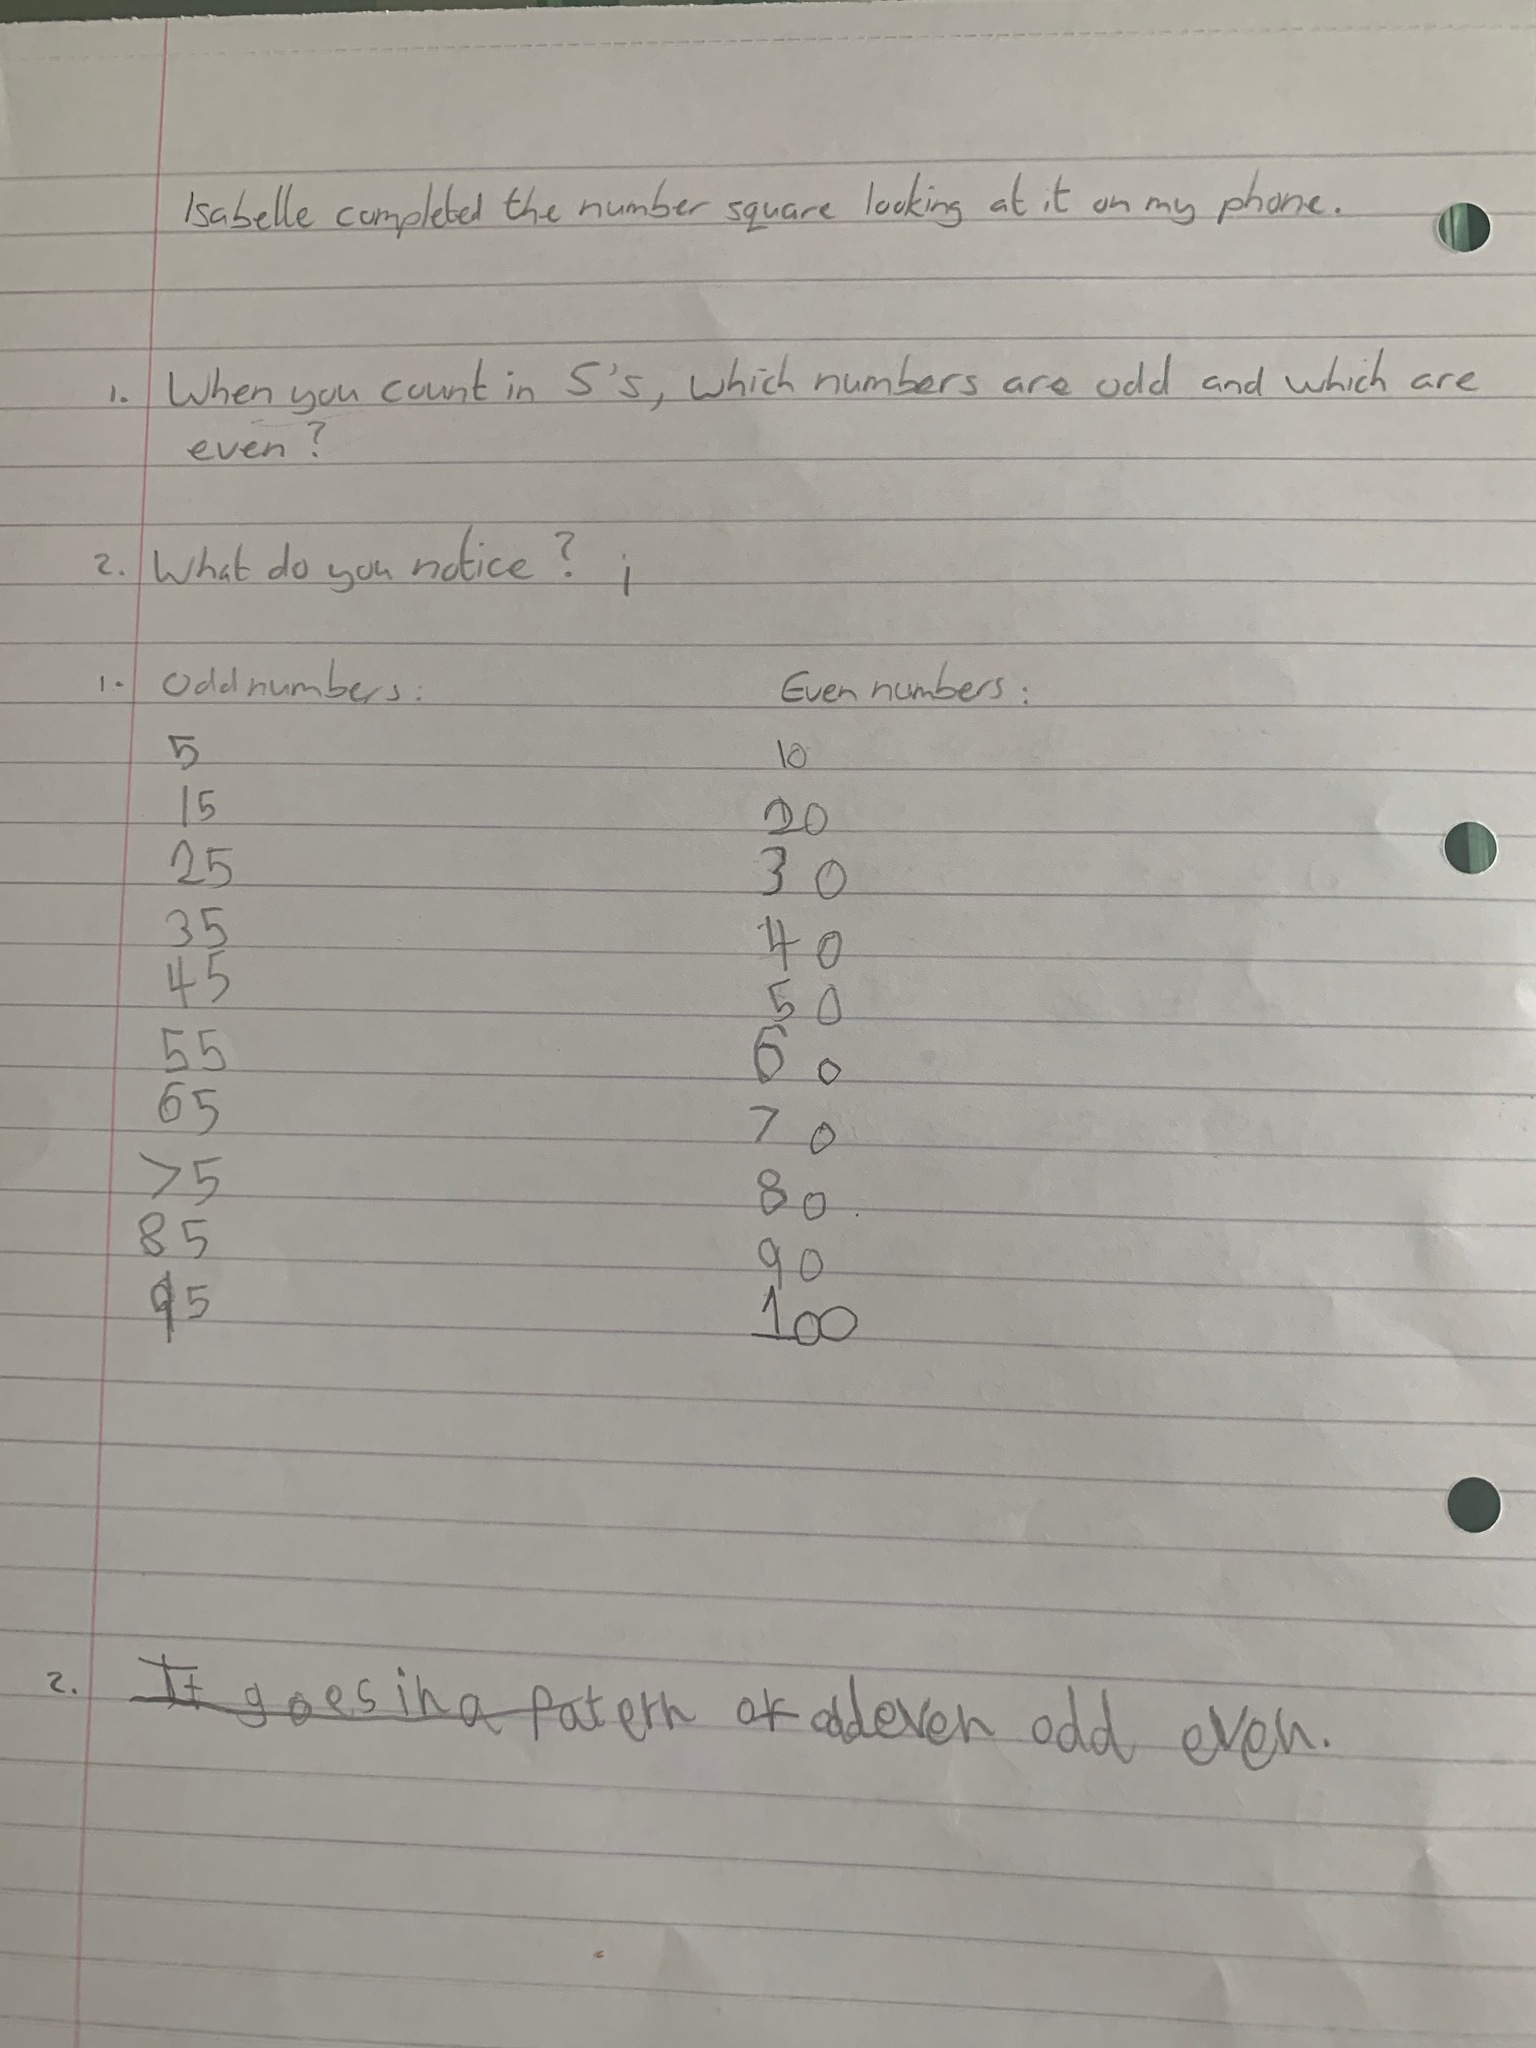 Isabelle completed the number square looking at it on my phone.
1. When you count in 5's, which numbers are odd and which are
even?
2. What do you notice? i
1. Odd numbers: Even numbers:
5 10
15 20
25 30
35 40
45 50
55 60
65 70
75 80
85 90
95 100
2. It goes in a patern of odd even odd even.